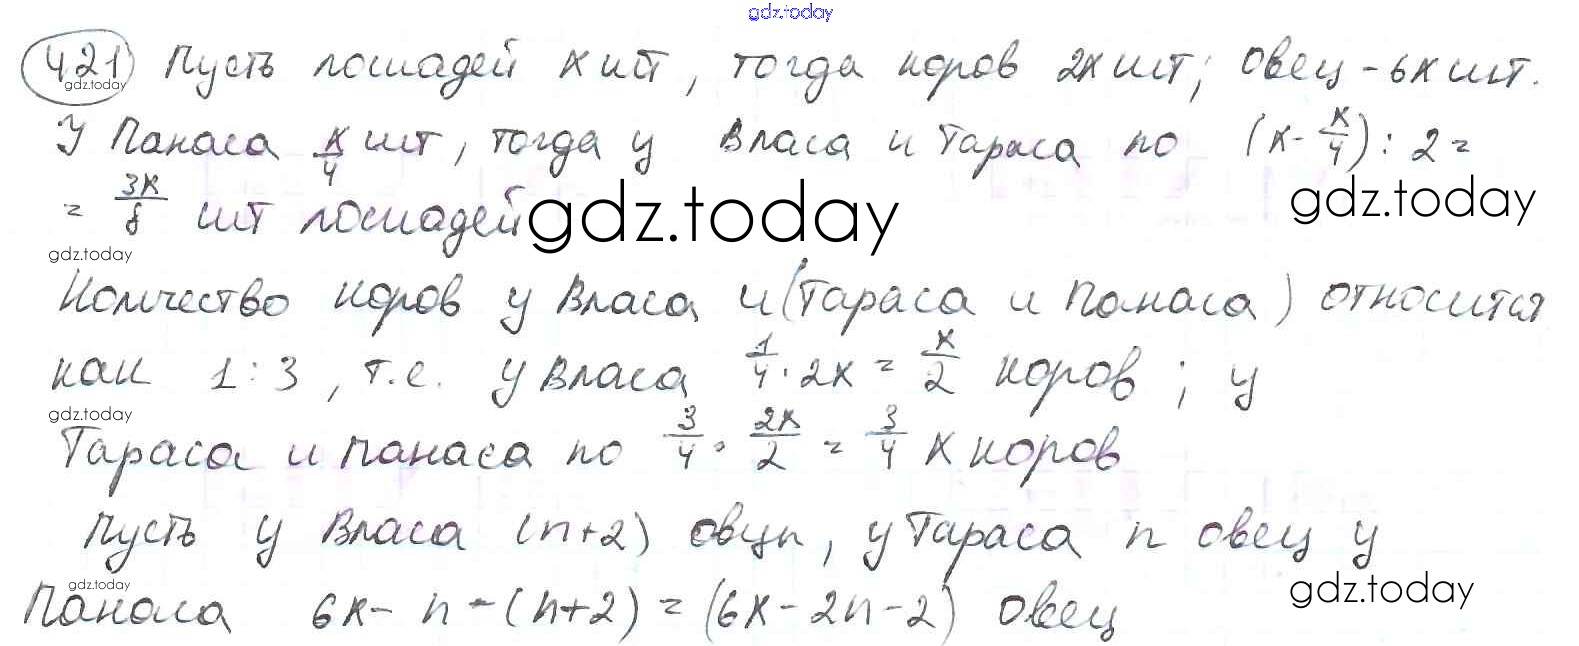 gdz.today
421 Пусть лошадей x шт, тогда коров 2x шт; овец - 6x шт.
gdz.today
У Панаса x/4 шт, тогда у Власа и Тараса по (x - x/4) : 2 =
= 3x/8 шт лошадей
gdz.today
gdz.today
gdz.today
Количество коров у Власа и (Тараса и Панаса) относится
как 1 : 3, т.е. у Власа 1/4 · 2x = x/2 коров; у
gdz.today
Тараса и Панаса по 3/4 · 2x/2 = 3/4 x коров
Пусть у Власа (n+2) овцы, у Тараса n овец у
gdz.today
gdz.today
Панаса 6x - n - (n+2) = (6x - 2n - 2) овец